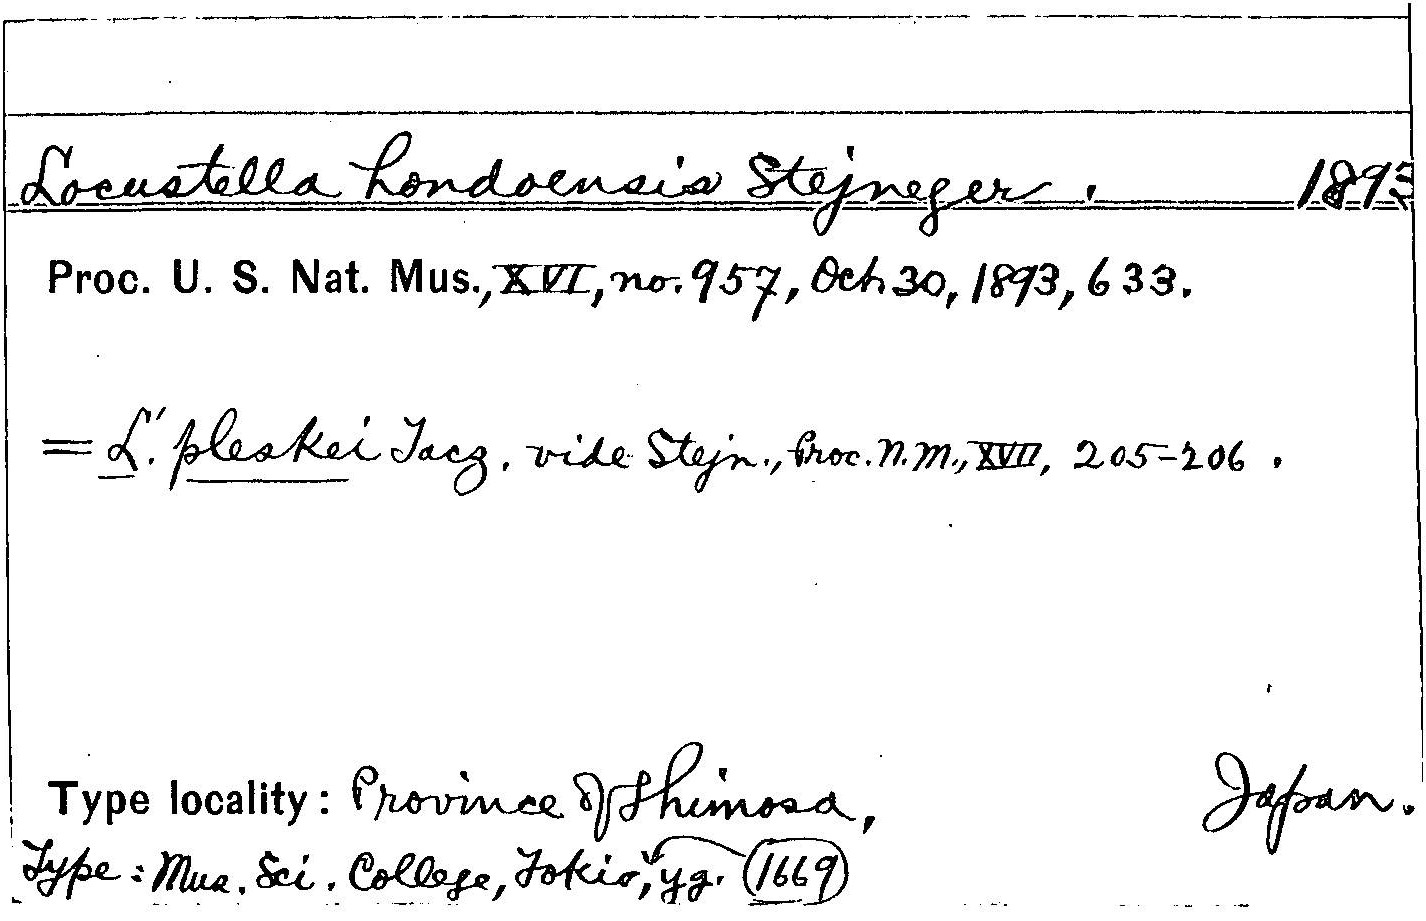 Locustella hondoensis Stejneger. 1893
Proc. U. S. Nat. Mus., XVI, no. 957, Oct. 30, 1893, 633.
= L. pleskei Tacz. vide Stejn., Proc. N. M., XVII, 205-206.
Type locality: Province of Shimosa, Japan.
Type: Mus. Sci. College, Tokio, yg. 1669